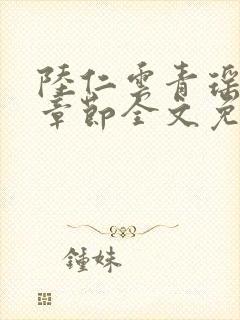 陸仁雲青瑶
章節全文免
鍾妹